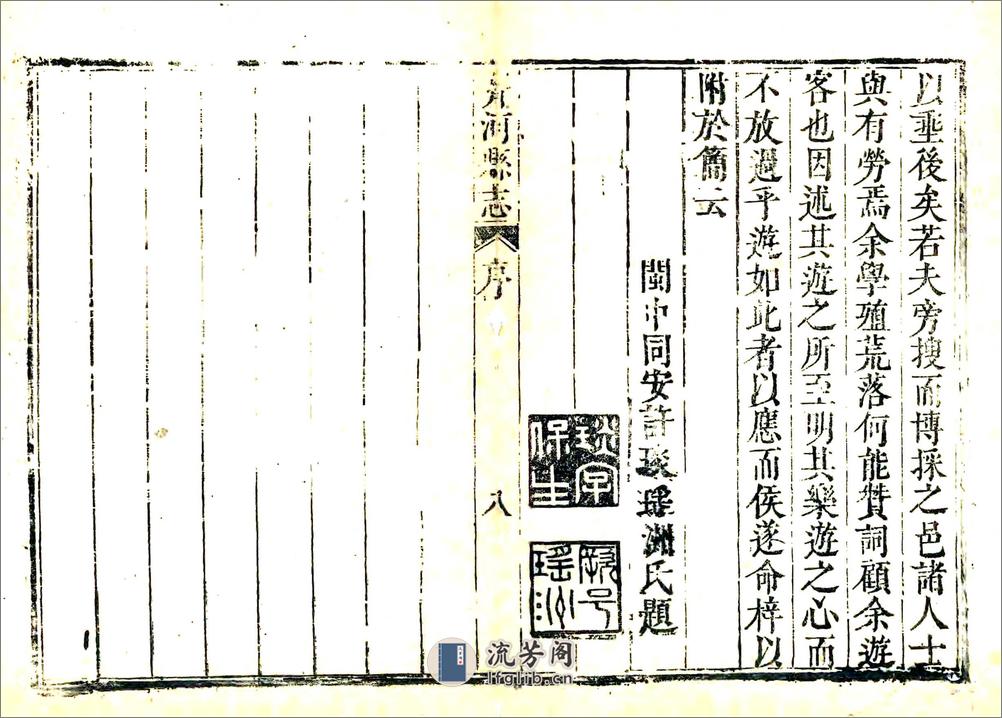 以垂後矣若夫旁搜而博採之邑諸人士
與有勞焉余學殖荒落何能贊詞顧余遊
客也因述其遊之所至明其樂遊之心而
不放過乎遊如此者以應而侯遂命梓以
附於簡云
閩中同安許琰瑤洲氏題
琰字保生
瑤洲
河縣志
序
八
流芳阁
lfglib.cn